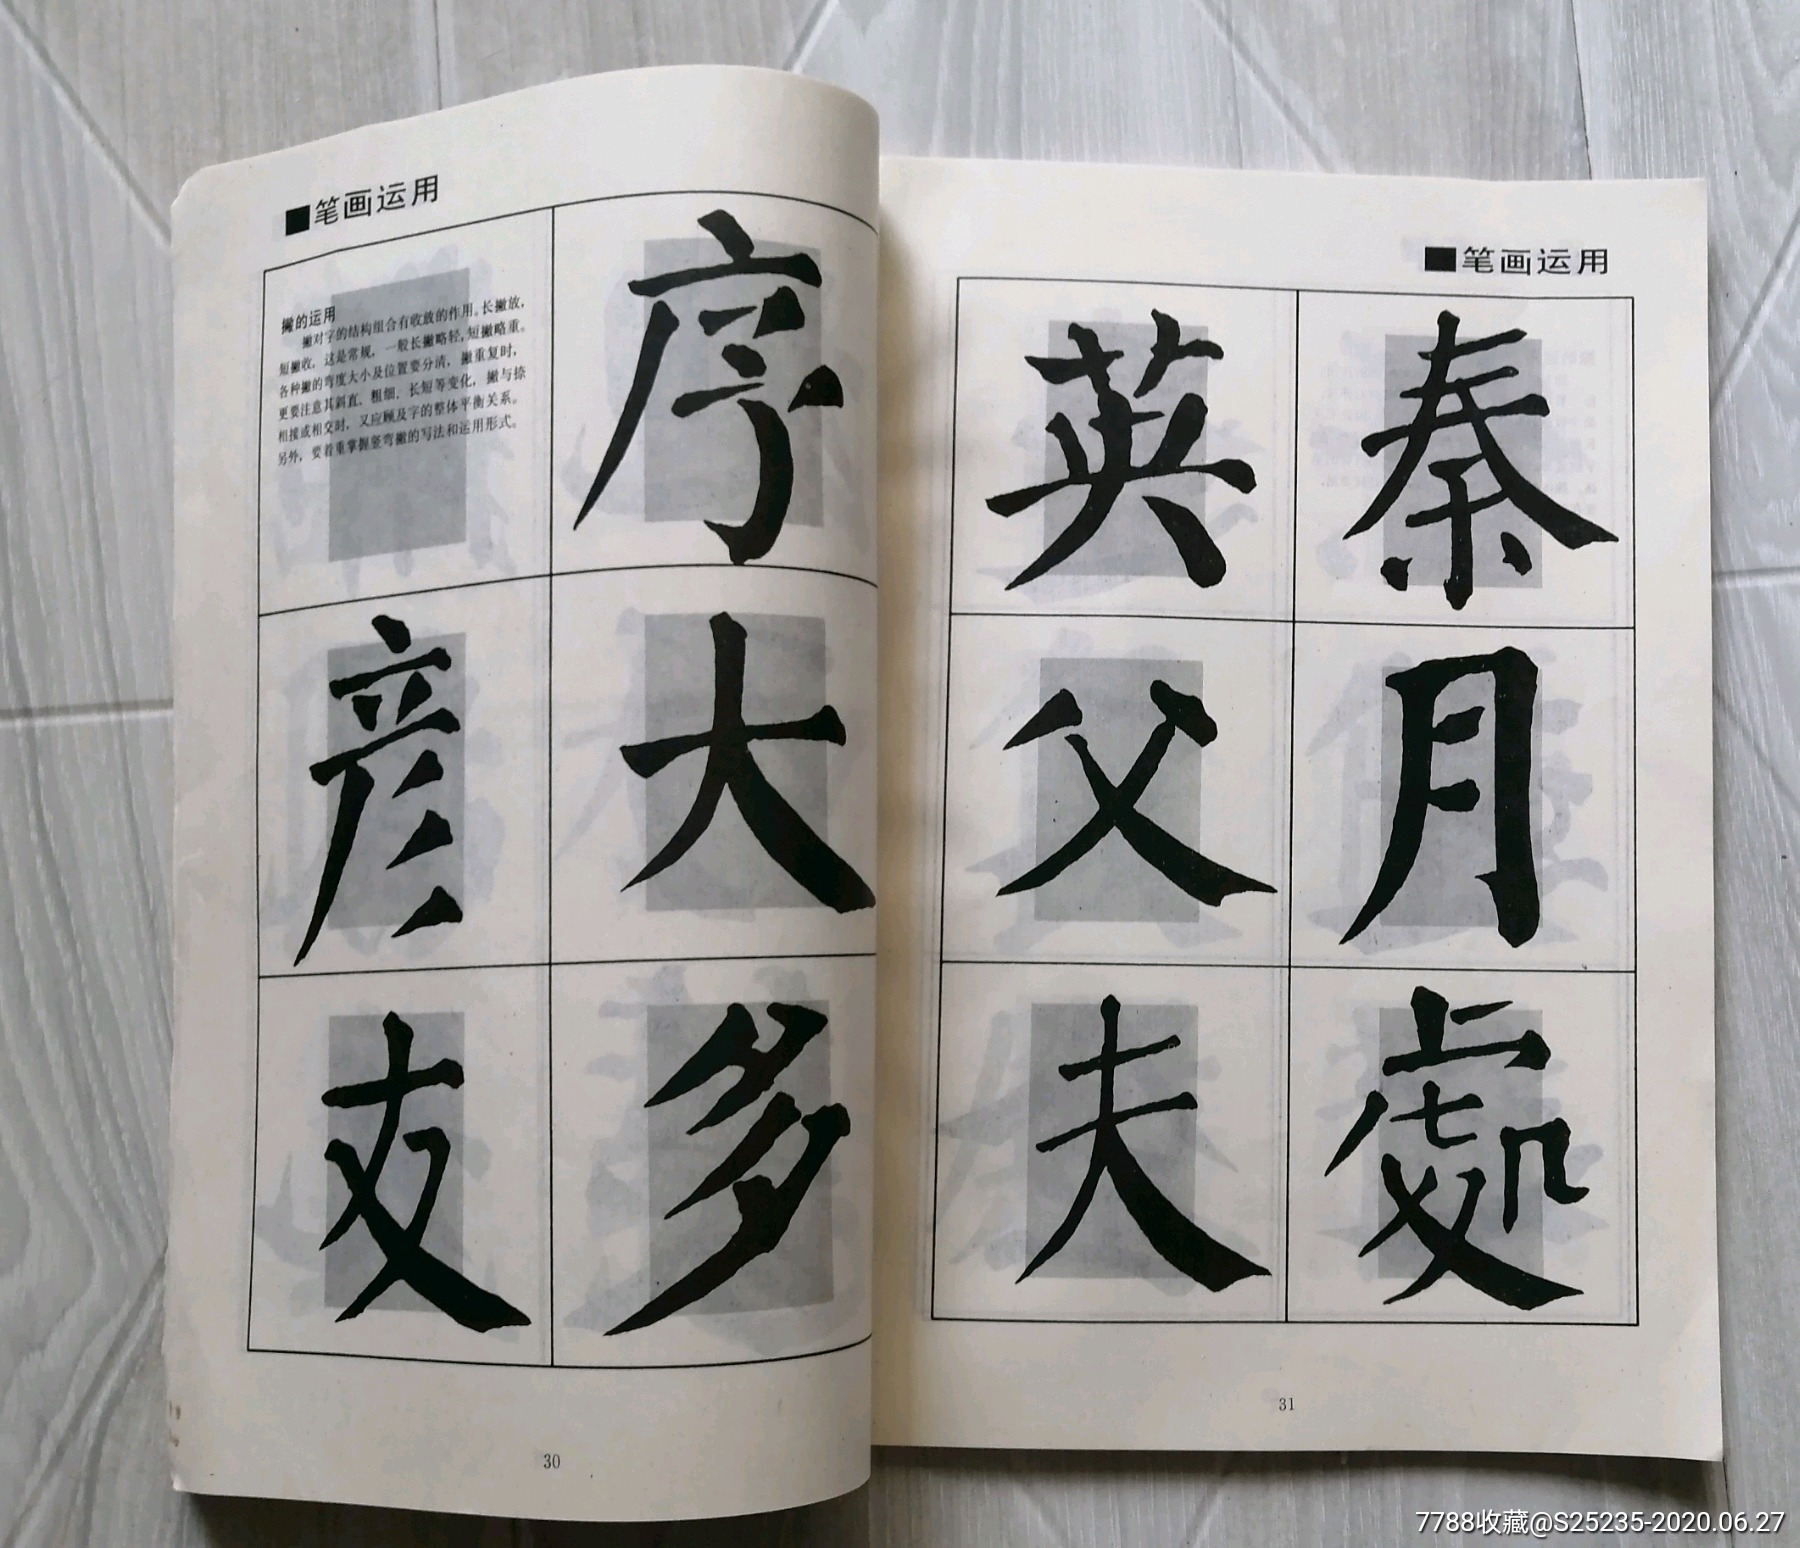 ■笔画运用
撇的运用
撇对字的结构组合有收放的作用。长撇放，
短撇收，这是常规，一般长撇略轻，短撇略重。
各种撇的弯度大小及位置要分清，撇重复时，
更要注意其斜直、粗细、长短等变化，撇与捺
相接或相交时，又应顾及字的整体平衡关系。
另外，要着重掌握竖弯撇的写法和运用形式。
序
彦 大
友 多
30
■笔画运用
英 秦
父 月
夫 處
31
7788收藏@S25235-2020.06.27